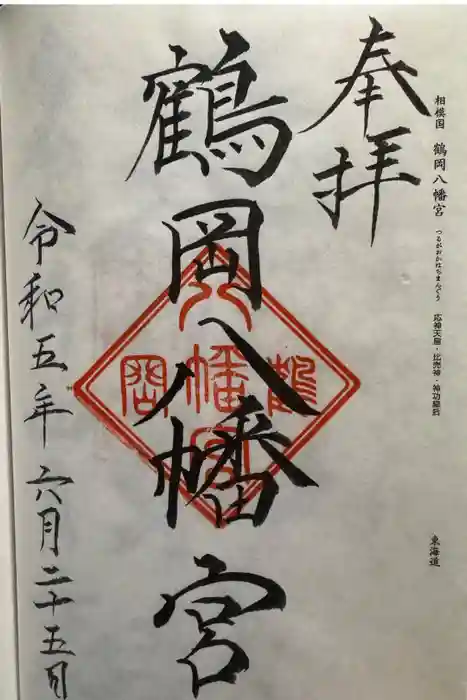 相模国 鶴岡八幡宮 つるがおかはちまんぐう 応神天皇・比売神・神功皇后 東海道
奉拝
鶴岡八幡宮
鶴 八幡宮 岡
令和五年六月二十五日